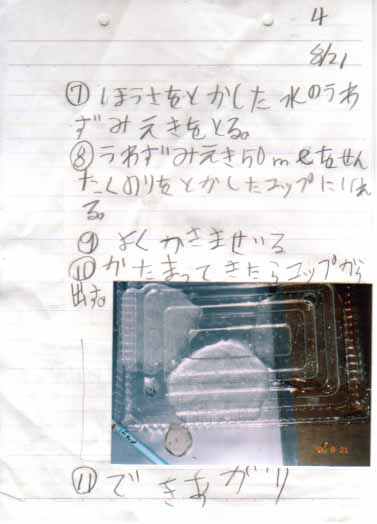 4
8/21
⑦ ほうさをとかした水のうわ
ずみえきをとる。
⑧ うわずみえき50mℓをせん
たくのりをとかしたコップにいれ
る。
⑨ よくかきませいる
⑩ かたまってきたらコップから
出す。
⑪ できあがり